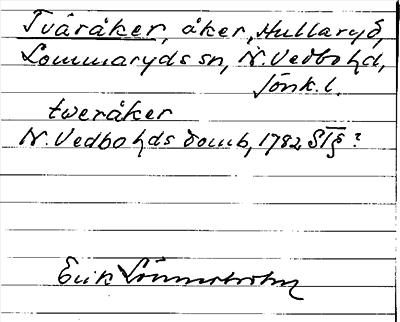 Tvåråker, åker, Hullaryd,
Lommaryds sn, N. Vedbo hd,
Jönk. l.
tweråker
N. Vedbo hds domb, 1782 § ?
Erik